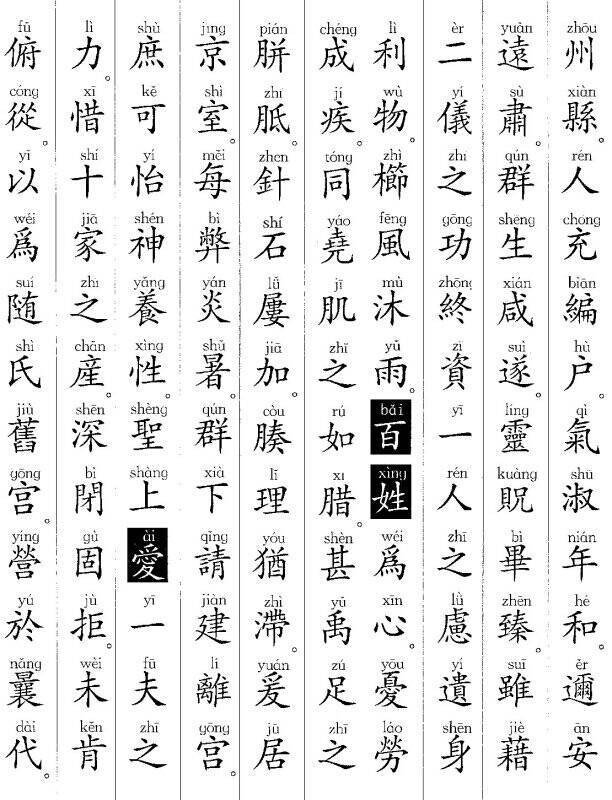 zhōu xiàn rén chōng biān hù qì shū nián hé ěr ān
州縣。人充編户。氣淑年和。邇安
yuǎn sù qún shēng xián suì líng kuàng bì zhēn suī jiè
遠肅。群生咸遂。靈貺畢臻。雖藉
èr yí zhī gōng zhōng zī yī rén zhī lǜ yí shēn
二儀之功終資一人之慮。遺身
lì wù zhì fēng mù yǔ bǎi xìng wéi xīn yōu láo
利物。櫛風沐雨。百姓爲心。憂勞
chéng jí tóng yáo jī zhī rú xī shèn yǔ zú zhī
成疾。同堯肌之如腊。甚禹足之
pián zhī zhēn shí lǚ jiā còu lǐ yóu zhì yuán jū
胼胝。針石屢加。腠理猶滯。爰居
jīng shì měi bì yán shǔ qún xià qǐng jiàn lí gōng
京室。每弊炎暑。群下請建離宮。
shù kě yí shén yǎng xìng shèng shàng ài yī fū zhī
庶可怡神養性。聖上愛一夫之
lì xī shí jiā zhī chǎn shēn bì gù jù wèi kěn
力。惜十家之産。深閉固拒。未肯
fǔ cóng yǐ wéi suí shì jiù gōng yíng yú nǎng dài
俯從。以爲随氏舊宮。營於曩代。